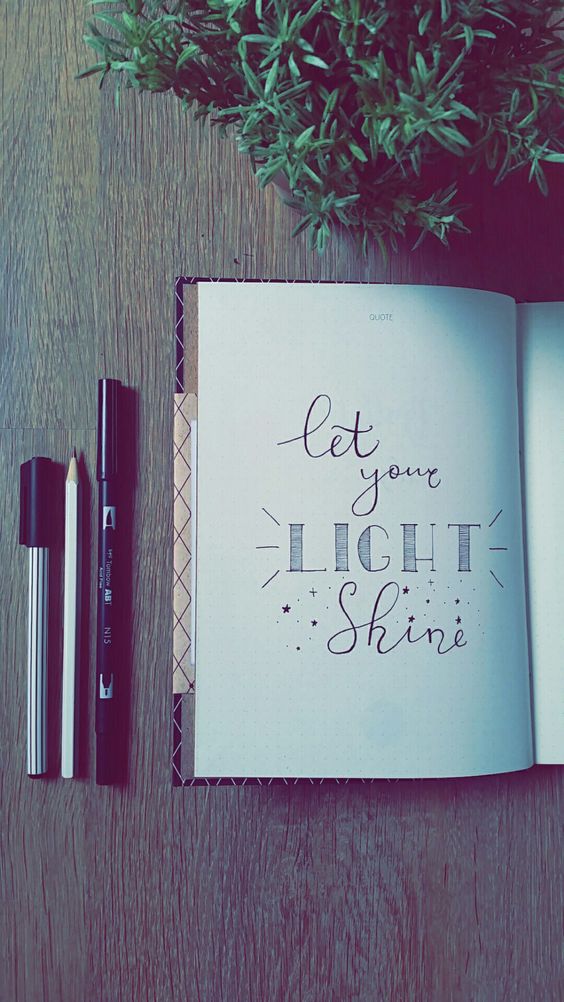 QUOTE
let
your
LIGHT
Shine
Tombow ABT
N15